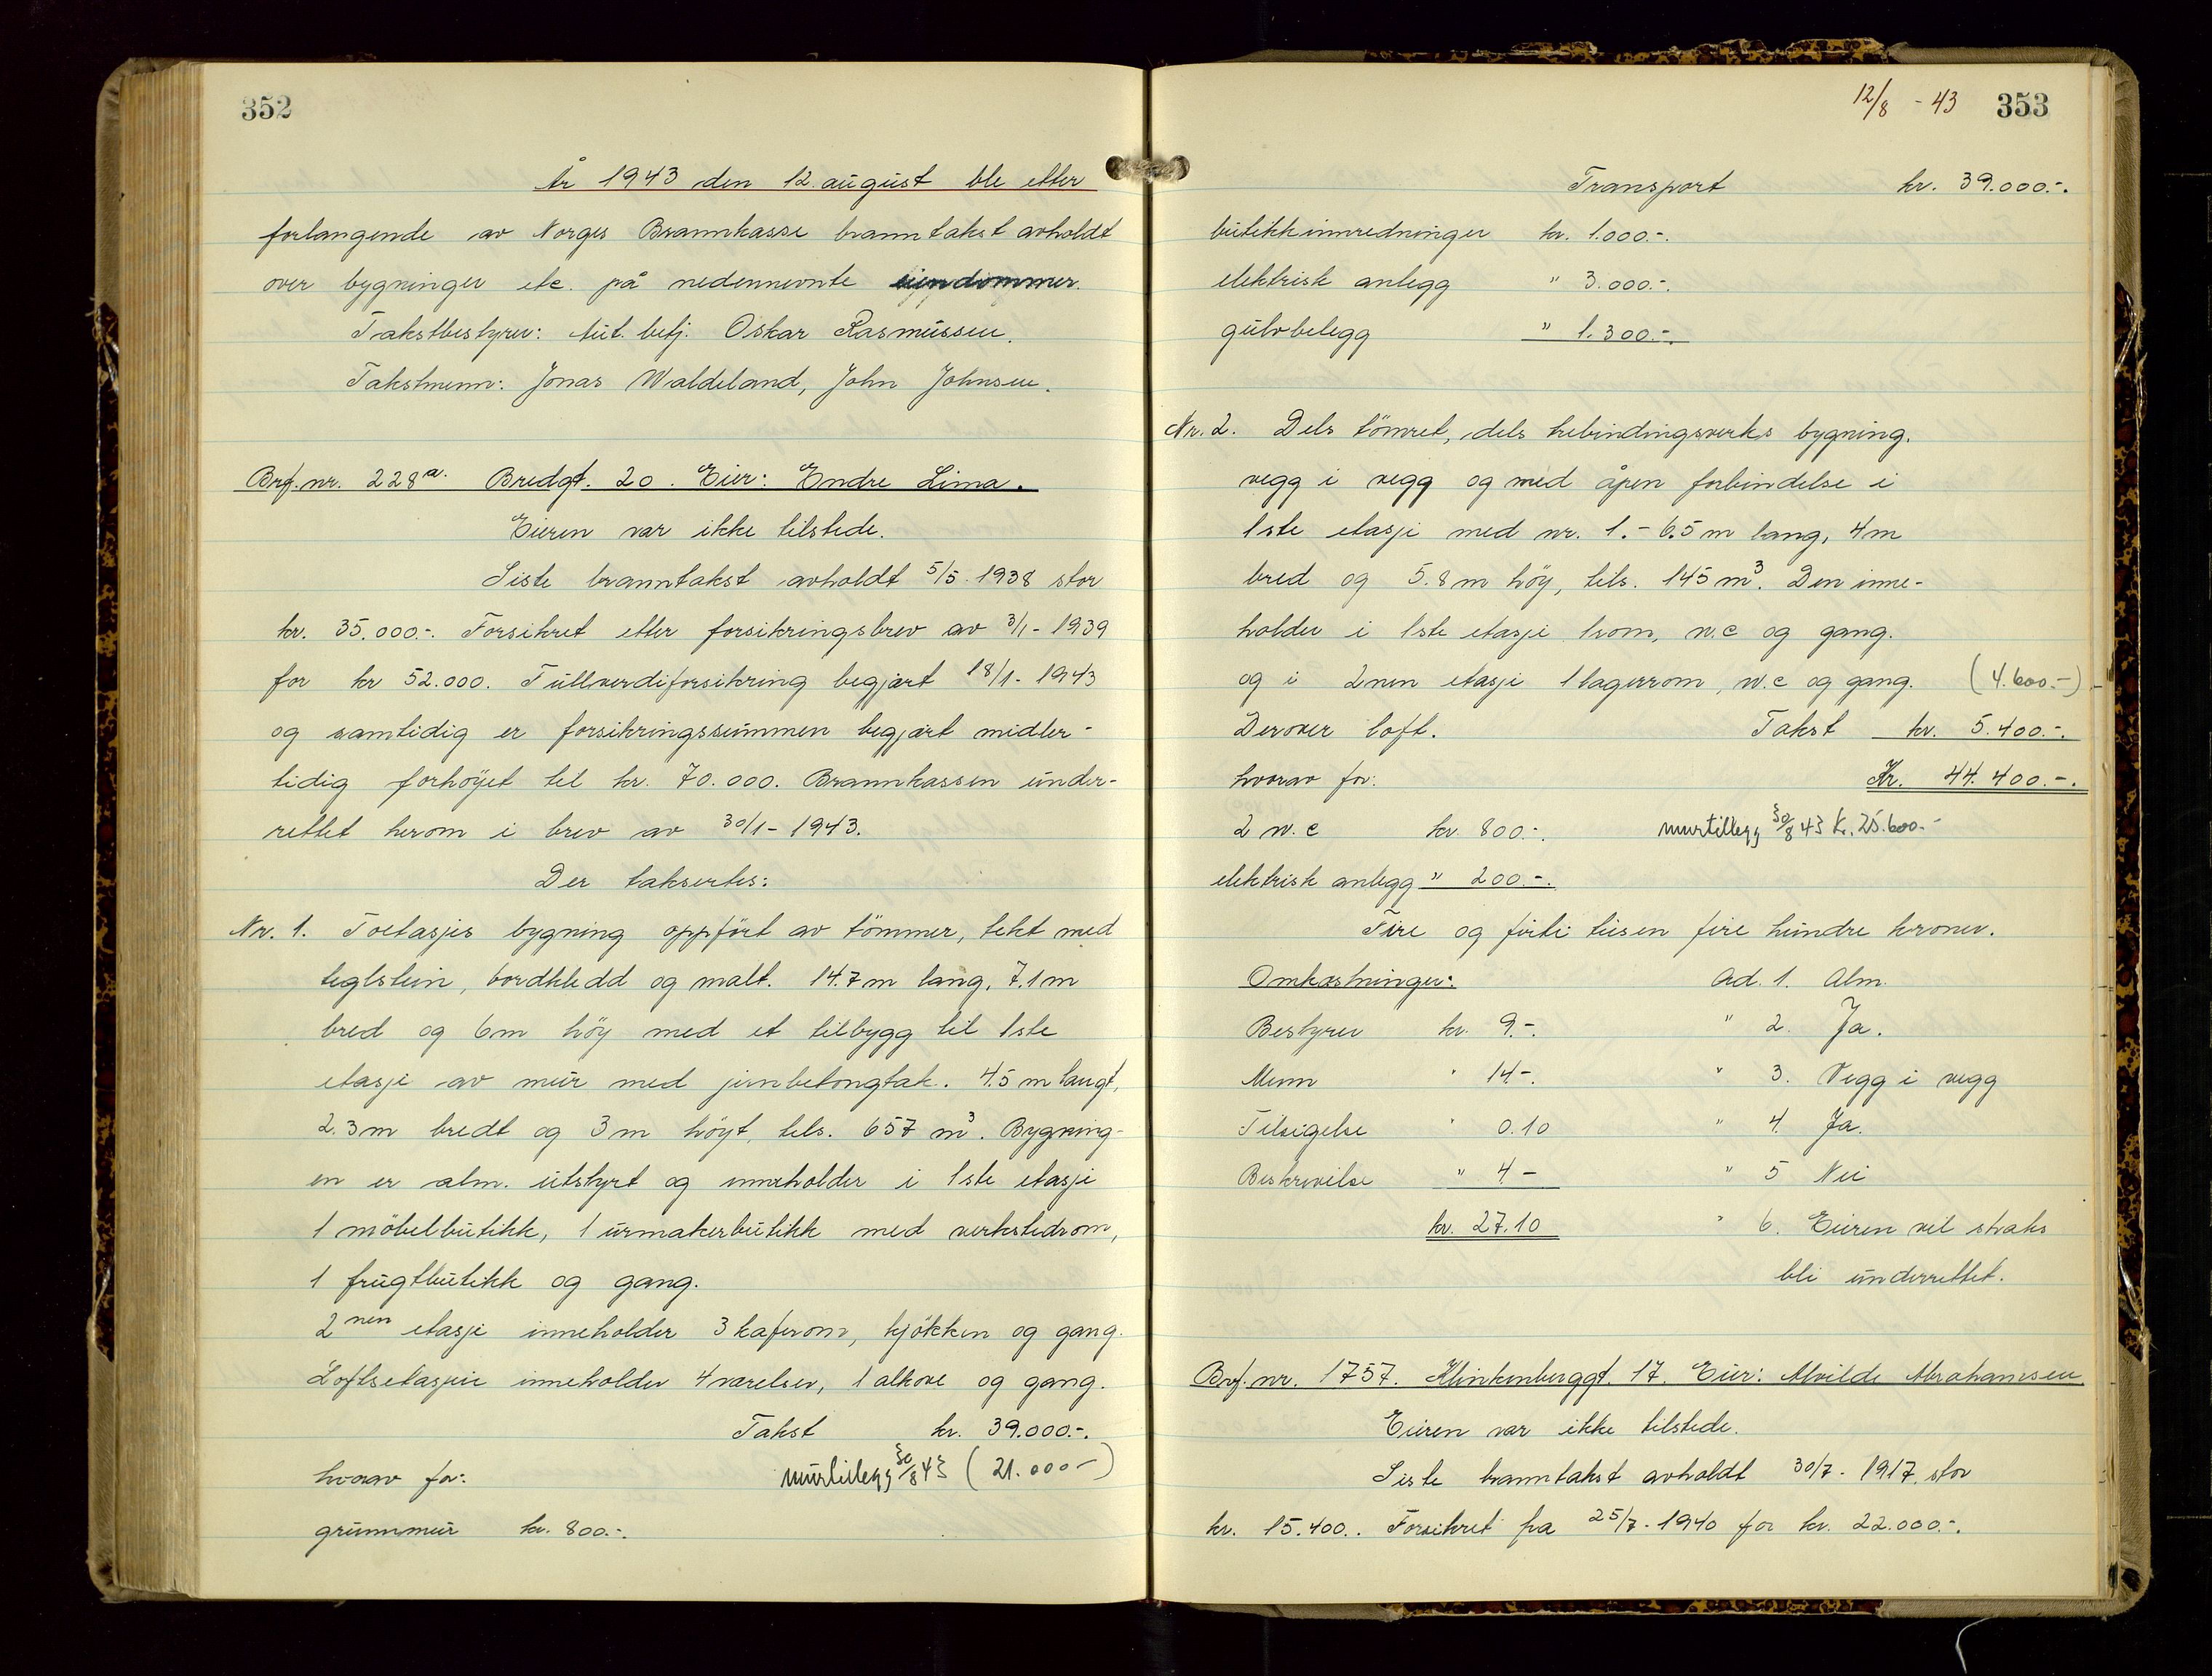 352
År 1943 den 12. august ble etter
forlangende av Norges Brannkasse branntakst avholdt
over bygninger etc. på nedennevnte eiendommer.
Takstbestyrer: Aut. betj. Oskar Rasmussen.
Takstmenn: Jonas Waldeland, John Johnsen.
Brf. nr. 228a. Bredgt. 20. Eier: Endre Lima.
Eieren var ikke tilstede.
Siste branntakst avholdt 5/5-1938 stor
kr. 35.000.-. Forsikret etter forsikringsbrev av 3/1-1939
for kr 52.000. Fullverdiforsikring begjært 18/1-1943
og samtidig er forsikringssummen begjært midler-
tidig forhöyet til kr. 70.000. Brannkassen under-
rettet herom i brev av 30/1-1943.
Der taksertes:
Nr. 1. Toetasjes bygning oppfört av tömmer, tekt med
teglstein, bordkledd og malt. 14.7 m lang, 7.1 m
bred og 6 m höy med et tilbygg til 1ste
etasje av mur med jernbetongtak. 4.5 m langt,
2.3 m bredt og 3 m höyt, tils. 657 m3. Bygning-
en er alm. utstyrt og inneholder i 1ste etasje
1 möbelbutikk, 1 urmakerbutikk med verkstedrom,
1 frugtbutikk og gang.
2nen etasje inneholder 3 kaferom, kjökken og gang.
Loftsetasjen inneholder 4 værelser, 1 alkove og gang.
Takst kr. 39.000.-.
hvorav for: murtillegg 30/8 43 (21.000-)
grunnmur kr. 800.-.
12/8 - 43 353
Transport kr. 39.000.-.
butikkinnredninger kr. 1.000.-.
elektrisk anlegg " 3.000.-.
gulvbelegg " 1.300.-.
Nr. 2. Dels tömret, dels trebindingsverks bygning,
vegg i vegg og med åpen forbindelse i
1ste etasje med nr. 1.- 6.5 m lang, 4 m
bred og 5.8 m höy, tils. 145 m3. Den inne-
holder i 1ste etasje 1 rom, w.c og gang.
og i 2nen etasje 1 lagerrom, w.c og gang. (4.600.-)
Derover loft. Takst kr. 5.400.-.
hvorav for: Kr. 44.400.-.
2 w.c kr. 800.-. murtillegg 30/8 43 kr. 25.600.-
elektrisk anlegg " 200.-.
Fire og förti tusen fire hundre kroner.
Omkostninger: Ad. 1. Alm.
Bestyrer kr. 9.-. " 2. Ja.
Menn " 14.-. " 3. Vegg i vegg
Tilsigelse " 0.10 " 4. Ja.
Beskrivelse " 4.- " 5 Nei
kr. 27.10 " 6. Eieren vil straks
bli underrettet.
Brf. nr. 1757. Klinkenberggt. 17. Eier: Alvilde Abrahamsen
Eieren var ikke tilstede.
Siste branntakst avholdt 30/7-1917. stor
kr. 15.400.. Forsikret fra 25/7-1940 for kr. 22.000.-.